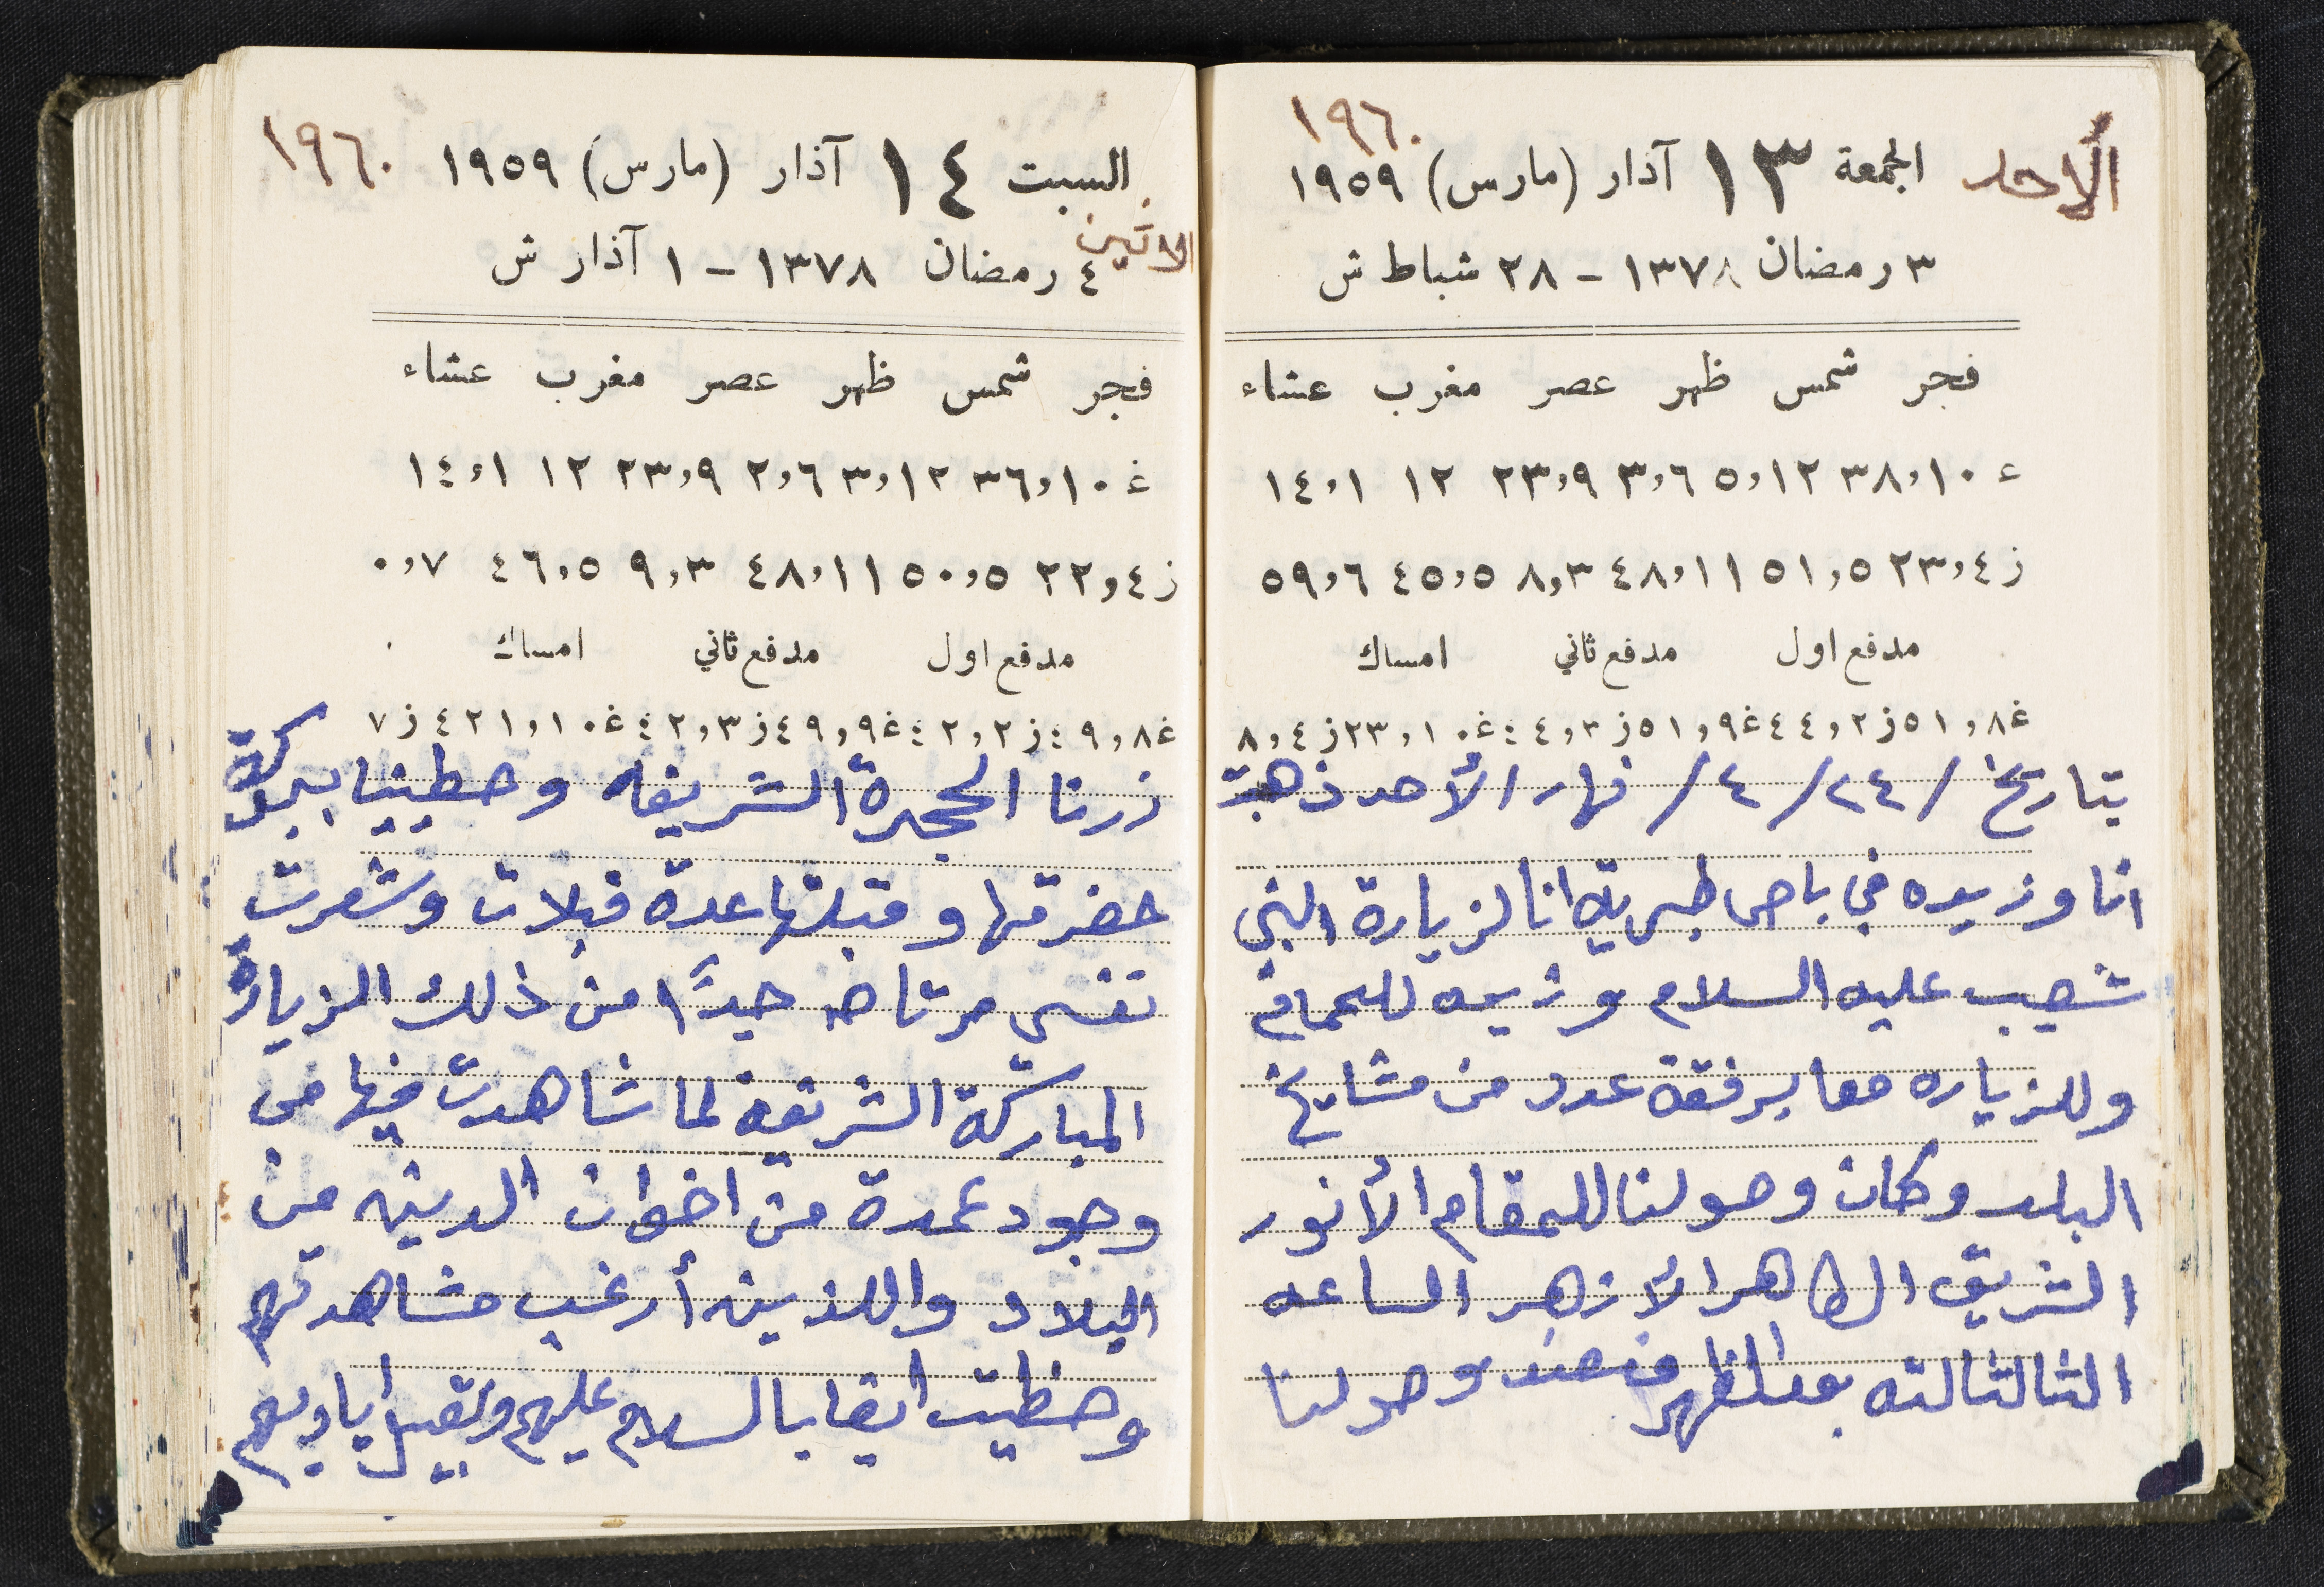 ١٩٦٠
الأحد
الجمعة ١٣ آذار (مارس) ١٩٥٩
٣ رمضان ١٣٧٨ - ٢٨ شباط ش
فجر شمس ظهر عصر مغرب عشاء
غ ١٠,٣٨ ١٢,٥ ٦,٣ ٩,٢٣ ١٢ ١,١٤
ز ٤,٢٣ ٥,٥١ ١١,٤٨ ٣,٨ ٥,٤٥ ٦,٥٩
مدفع اول مدفع ثاني امساك
غ ٨,٥١ ز ٢,٤٤ غ ٩,٥١ ز ٣,٤٤ غ ١٠,٢٣ ز ٤,٨
بتاريخ /٢٤/ ٤/ نهار الأحد ذهبت
انا وزيده في باص طبرية انا لزيارة النبي
شعيب عليه السلام وزيده للحمام
وللزياره معا برفقة عدد من مشايخ
البلد وكان وصولنا للمقام الأنور
الشريف الطاهر الأزهر الساعه
الثالثالثه بعد الظهر فعند وصولنا
السبت ١٤ آذار (مارس) ١٩٥٩ ١٩٦٠
الاثنين
٤ رمضان ١٣٧٨ - ١ آذار ش
فجر شمس ظهر عصر مغرب عشاء
غ ١٠,٣٦ ١٢,٣ ٦,٢ ٩,٢٣ ١٢ ١,١٤
ز ٤,٢٢ ٥,٥٠ ١١,٤٨ ٣,٩ ٥,٤٦ ٧,٠
مدفع اول مدفع ثاني امساك
غ ٨,٤٩ ز ٢,٤٢ غ ٩,٤٩ ز ٣,٤٢ غ ١٠,٢١ ٤ ز ٧
زرنا الحجرة الشريفه وحطينا ببركة
حضرتها وقبلتها عدة قبلات وشعرت
نفسي مرتاحه جيداً من ذلك الزيارة
المباركة الشريفة لما شاهدت فيها من
وجود عمدة من اخوان الدين من
البلاد واللذين أرغب مشاهدتهم
وحظيت ايضا بالسلام عليهم وتقبيل اياديهم